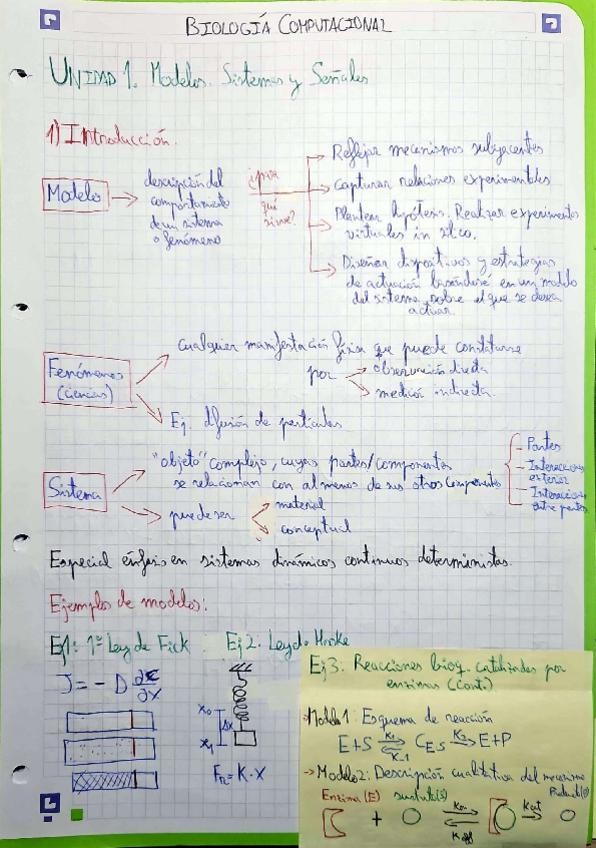 BIOLOGÍA COMPUTACIONAL
UNIDAD 1. Modelos. Sistemas y Señales
1) Introducción.
Modelo → descripción del
comportamiento
de un sistema
o fenómeno
¿para
qué
sirve?
Reflejar mecanismos subyacentes
Capturar relaciones experimentables
Plantear hipótesis. Realizar experimentos
virtuales in silico.
Diseñar dispositivos y estrategias
de actuación basándose en un modelo
del sistema sobre el que se desea
actuar.
Fenómenos
(ciencias)
cualquier manifestación física que puede constatarse
por
observación directa
medición indirecta.
Ej. difusión de partículas
Sistema
"objeto" complejo, cuyas partes/componentes
se relacionan con al menos de sus otros componentes
- Partes
- Interacciones
exterior
- Interacciones
entre partes
puede ser
material
conceptual
Especial énfasis en sistemas dinámicos continuos deterministas.
Ejemplos de modelos:
Ej1: 1ª Ley de Fick
J = - D ∂c/∂x
Ej 2. Ley de Hooke
x₀
Δx
x₁
F = K · x
Ej 3: Reacciones bioq. catalizadas por
enzimas (cont.)
→ Modelo 1: Esquema de reacción
E+S ⇌ C_ES → E+P
K₁
K₋₁
K₂
→ Modelo 2: Descripción cualitativa del mecanismo
Enzima (E) sustrato(S)
+
Kon
Koff
Kcat